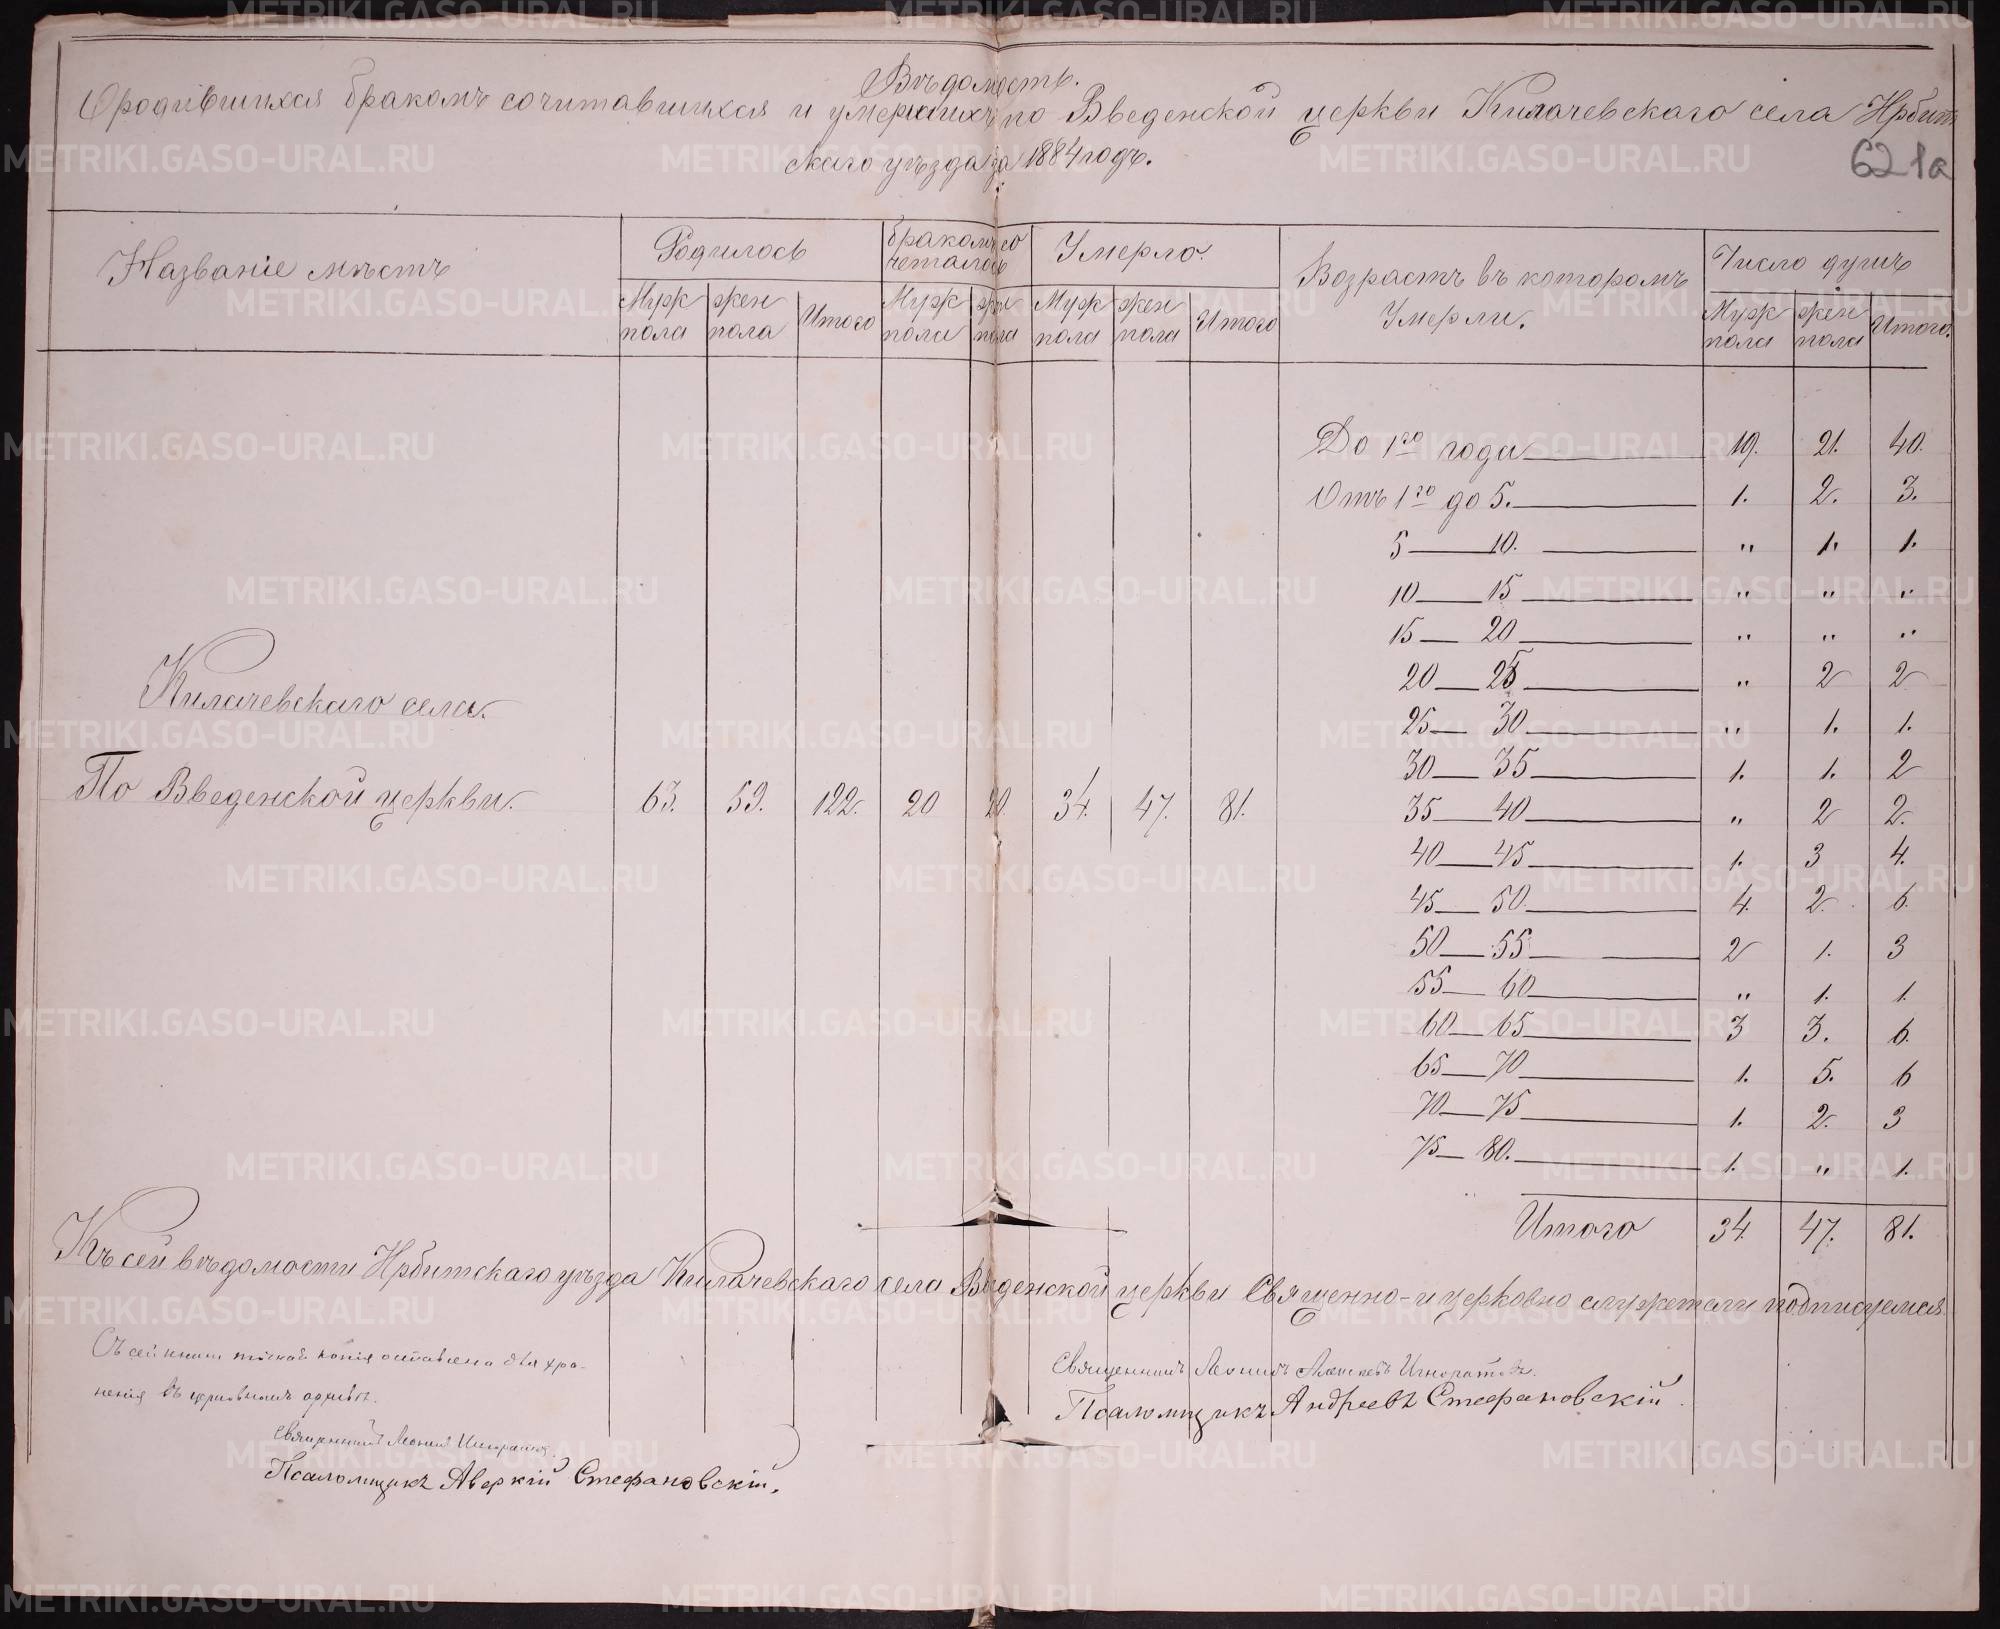 Вѣдомость.
О родившихся бракомъ сочитавшихся и умершихъ по Введенской церкви Килачевскаго села Ирбит
скаго уѣзда за 1884 годъ.
621а
Названіе мѣстъ
Родилось
бракомъ со
четалось
Умерло.
Возрастъ въ которомъ
Умерли.
Число душъ
Муж пола
жен пола
Итого
Муж пола
жен пола
Муж пола
жен пола
Итого
Муж пола
жен пола
Итого.
До 1го года 19. 21. 40.
Отъ 1го до 5. 1. 2. 3.
5 — 10. " 1. 1.
10 — 15 " " "
15 — 20 " " "
20 — 25 " 2 2
25 — 30 " 1. 1.
30 — 35 1. 1. 2
35 — 40 " 2 2.
40 — 45 1. 3 4.
45 — 50. 4. 2. 6.
50 — 55 2 1. 3
55 — 60 " 1. 1.
60 — 65 3 3. 6.
65 — 70 1. 5. 6
70 — 75 1. 2. 3
75 — 80. 1. " 1.
Итого 34. 47. 81.
Килачевскаго села.
По Введенской церкви. 63. 59. 122. 20 20. 34. 47. 81.
Къ сей вѣдомости Ирбитскаго уѣзда Килачевскаго села Введенской церкви Священно-и церковно служетели подписуемся
Съ сей книги точная копія оставлена для хра-
ненія въ церковномъ архивѣ.
Священникъ Леонидъ Игнатьевъ.
Псаломщикъ Аверкій Стефановскій.
Священникъ Леонидъ
Псаломщикъ Андреевъ Стефановскій.
METRIKI.GASO-URAL.RU